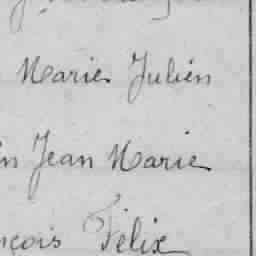 Marie Julien
in Jean Marie
nçois Félix